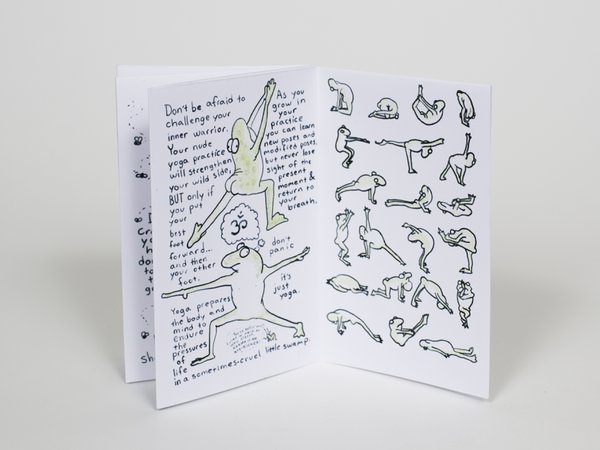 Don't be afraid to
challenge your
inner warrior.
Your nude
yoga practice
will strengthen
your wild side,
BUT only if
you put
your
best
foot
forward...
and then
your other
foot.
As you
grow in
your
practice
you can learn
new poses and
modified poses,
but never lose
sight of the
present
moment &
return to
your
breath.
ॐ
don't
panic
it's
just
yoga.
Yoga prepares
the body and
mind to
endure
the
pressures
of
life
in a sometimes-cruel little swamp.
Cr
yo
h
do
to
th
g
Sh